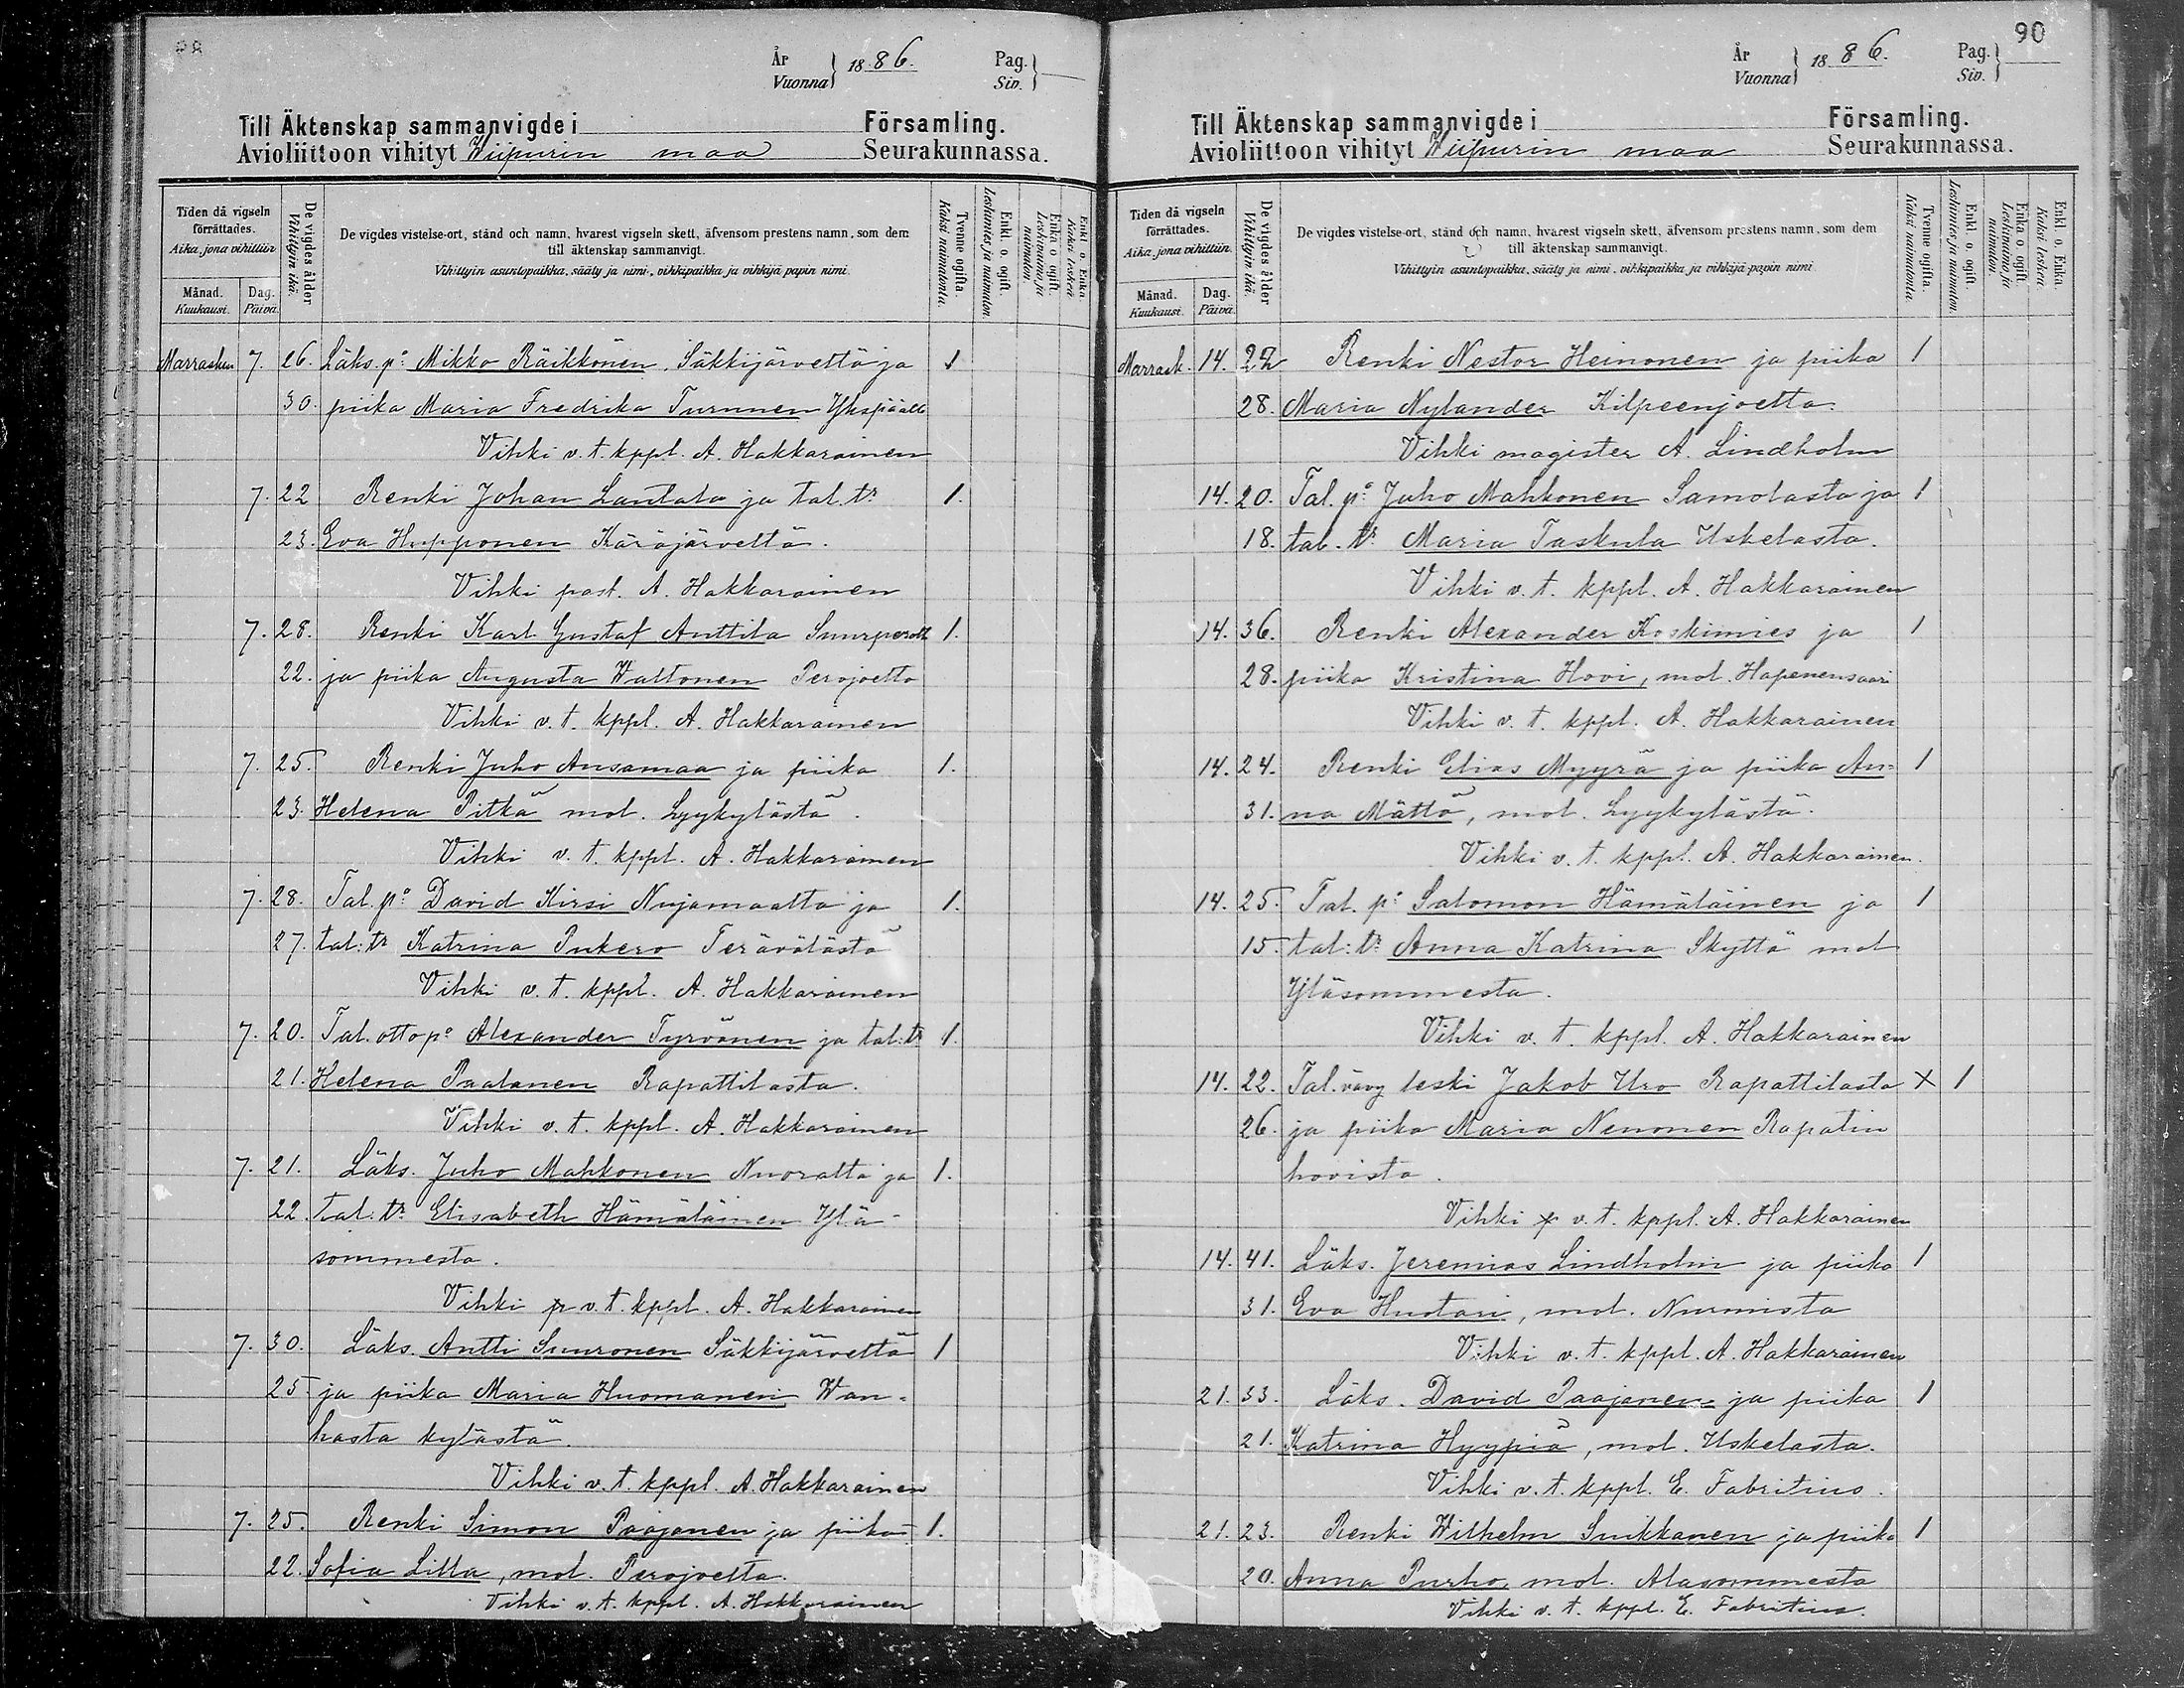 År
Vuonna } 1886.
Pag.
Siv. }
Till Äktenskap sammanvigde i Församling.
Avioliittoon vihityt Wiipurin maa Seurakunnassa.
Tiden då vigseln förrättades.
Aika, jona vihittiin
Månad.
Kuukausi.
Dag.
Päivä.
De vigdes ålder
Vihittyin ikä.
De vigdes vistelse-ort, stånd och namn, hvarest vigseln skett, äfvensom prestens namn, som dem
till äktenskap sammanvigt.
Vihittyin asuntopaikka, sääty ja nimi, vihkipaikka ja vihkijä papin nimi.
Tvenne ogifta.
Kaksi naimatonta.
Enkl. o. ogift.
Leskimies ja naimaton.
Enka o. ogift.
Leskivaimo ja naimaton.
Enkl. o. Enka
Kaksi leskeä
Marraskuu 7. 26. Läks. p:o Mikko Räikkönen, Säkkijärveltä ja 1
30. piika Maria Fredrika Turunen Ykspäältä
Vihki v. t. kppl. A. Hakkarainen
7. 22 Renki Johan Lantala ja tal. tr 1.
23. Eva Hupponen Käräjärveltä.
Vihki past. A. Hakkarainen
7. 28. Renki Karl Gustaf Anttila Suurperolt 1.
22. ja piika Augusta Waltonen Perojoelta
Vihki v. t. kppl. A. Hakkarainen
7. 25. Renki Juho Ansamaa ja piika 1.
23. Helena Pitkä mol. Lyykylästä.
Vihki v. t. kppl. A. Hakkarainen
7. 28. Tal. p:o David Kirsi Nujamaalta ja 1.
27. tal: tr Katrina Pukero Terävälästä
Vihki v. t. kppl. A. Hakkarainen
7. 20. Tal. otto p:o Alexander Tyrvänen ja tal: tr 1.
21. Helena Paalanen Rapattilasta.
Vihki v. t. kppl. A. Hakkarainen
7. 21. Läks. Juho Mahkonen Nuoralta ja 1.
22. Tal: tr Elisabeth Hämäläinen Ylä-
sommesta.
Vihki v. t. kppl. A. Hakkarainen
7. 30. Läks. Antti Suuronen Säkkijärveltä 1
25 ja piika Maria Huomanen Wan-
hasta kylästä.
Vihki v. t. kppl. A. Hakkarainen
7. 25. Renki Simon Paajanen ja piika 1.
22. Sofia Lilla, mol. Perojoelta.
Vihki v. t. kppl. A. Hakkarainen
90
År
Vuonna } 1886.
Pag.
Siv. }
Till Äktenskap sammanvigde i Församling.
Avioliittoon vihityt Wiipurin maa Seurakunnassa.
Tiden då vigseln förrättades.
Aika, jona vihittiin.
Månad.
Kuukausi.
Dag.
Päivä.
De vigdes ålder
Vihittyin ikä.
De vigdes vistelse-ort, stånd och namn, hvarest vigseln skett, äfvensom prestens namn, som dem
till äktenskap sammanvigt.
Vihittyin asuntopaikka, sääty ja nimi, vihkipaikka ja vihkijä papin nimi
Tvenne ogifta.
Kaksi naimatonta.
Enkl. o. ogift.
Leskimies ja naimaton.
Enka o. ogift.
Leskivaimo ja naimaton.
Enkl. o. Enka.
Kaksi leskeä
Marrask. 14. 22 Renki Nestor Heinonen ja piika 1
28. Maria Nylander Kilpeenjoelta.
Vihki magister A. Lindholm
14. 20. Tal. p:o Juho Mahkonen Samolasta ja 1
18. tal. tr Maria Taskula Uskelasta.
Vihki v. t. kppl. A. Hakkarainen
14. 36. Renki Alexander Koskimies ja 1
28. piika Kristina Hovi, mol. Hapenensaari
Vihki v. t. kppl. A. Hakkarainen
14. 24. Renki Elias Myyrä ja piika An= 1
31. na Mättö, mol. Lyykylästä.
Vihki v. t. kppl. A. Hakkarainen.
14. 25. Tal. p: Salomon Hämäläinen ja 1
15. tal: tr Anna Katrina Skyttä mol
Yläsommesta.
Vihki v. t. kppl. A. Hakkarainen
14. 22. Tal. vävy leski Jakob Uro Rapattilasta X 1
26. ja piika Maria Nenonen Rapatin
hovista.
Vihki v. t. kppl. A. Hakkarainen
14. 41. Läks. Jeremias Lindholm ja piika 1
31. Eva Huotari, mol. Nurmista
Vihki v. t. kppl. A. Hakkarainen
21. 33. Läks. David Paajanen ja piika 1
21. Katrina Hyypiä, mol. Uskelasta.
Vihki v. t. kppl. E. Fabritius.
21. 23. Renki Wilhelm Suikkanen ja piika 1
20. Anna Purho, mol. Alasommesta
Vihki v. t. kppl. E. Fabritius.